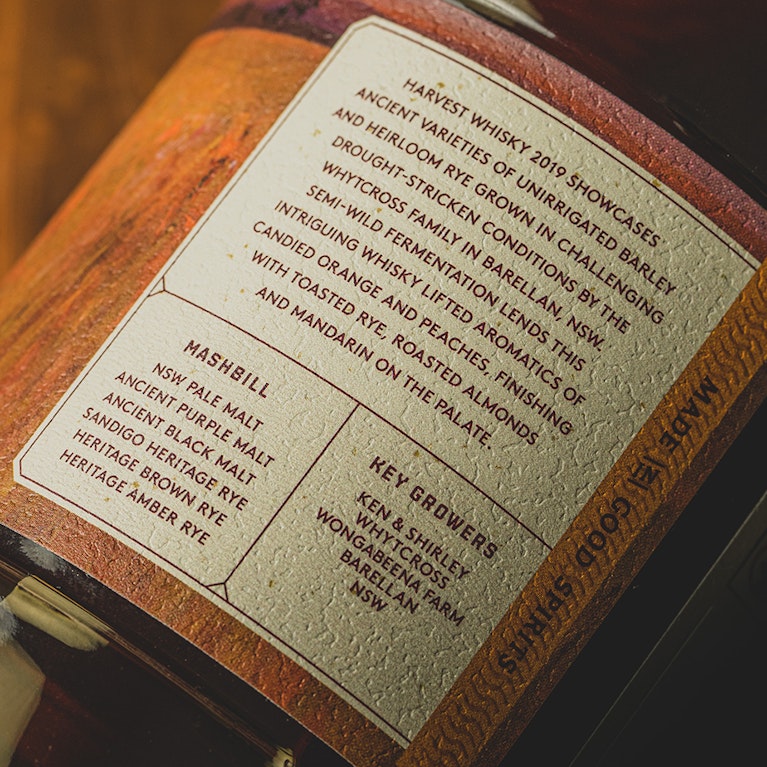 HARVEST WHISKY 2019 SHOWCASES
ANCIENT VARIETIES OF UNIRRIGATED BARLEY
AND HEIRLOOM RYE GROWN IN CHALLENGING
DROUGHT-STRICKEN CONDITIONS BY THE
WHYTCROSS FAMILY IN BARELLAN, NSW.
SEMI-WILD FERMENTATION LENDS THIS
INTRIGUING WHISKY LIFTED AROMATICS OF
CANDIED ORANGE AND PEACHES, FINISHING
WITH TOASTED RYE, ROASTED ALMONDS
AND MANDARIN ON THE PALATE.
MASHBILL
NSW PALE MALT
ANCIENT PURPLE MALT
ANCIENT BLACK MALT
SANDIGO HERITAGE RYE
HERITAGE BROWN RYE
HERITAGE AMBER RYE
KEY GROWERS
KEN & SHIRLEY
WHYTCROSS
WONGABEENA FARM
BARELLAN
NSW
MADE IN GOOD SPIRITS